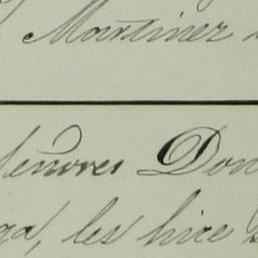 Martinez
Señores Don
ga, les hice